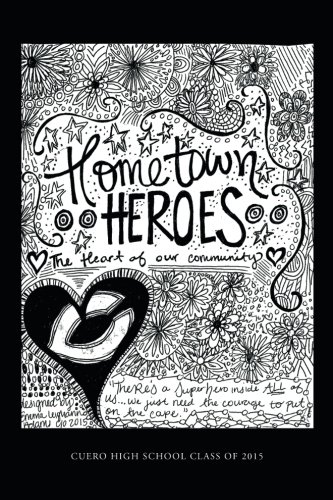 Hometown
HEROES
The Heart of our community
C
"There's a superhero inside ALL of
us...we just need the courage to put
on the cape."
designed by:
Emma Leyvanne
Adams c/o 2015
CUERO HIGH SCHOOL CLASS OF 2015